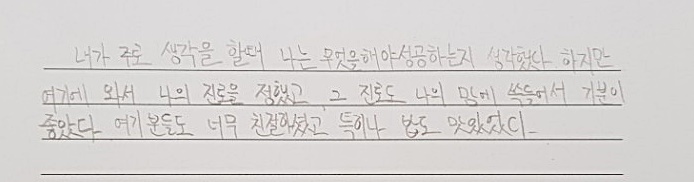 너가 주로 생각을 할때 나는 무엇을해야성공하는지 생각했다 하지만
여기에 와서 나의 진로을 정했고 그 진로도 나의 맘에 쏙들어서 기분이
좋았다 여기분들도 너무 친절하셨고 특히나 밥도 맛있었다-